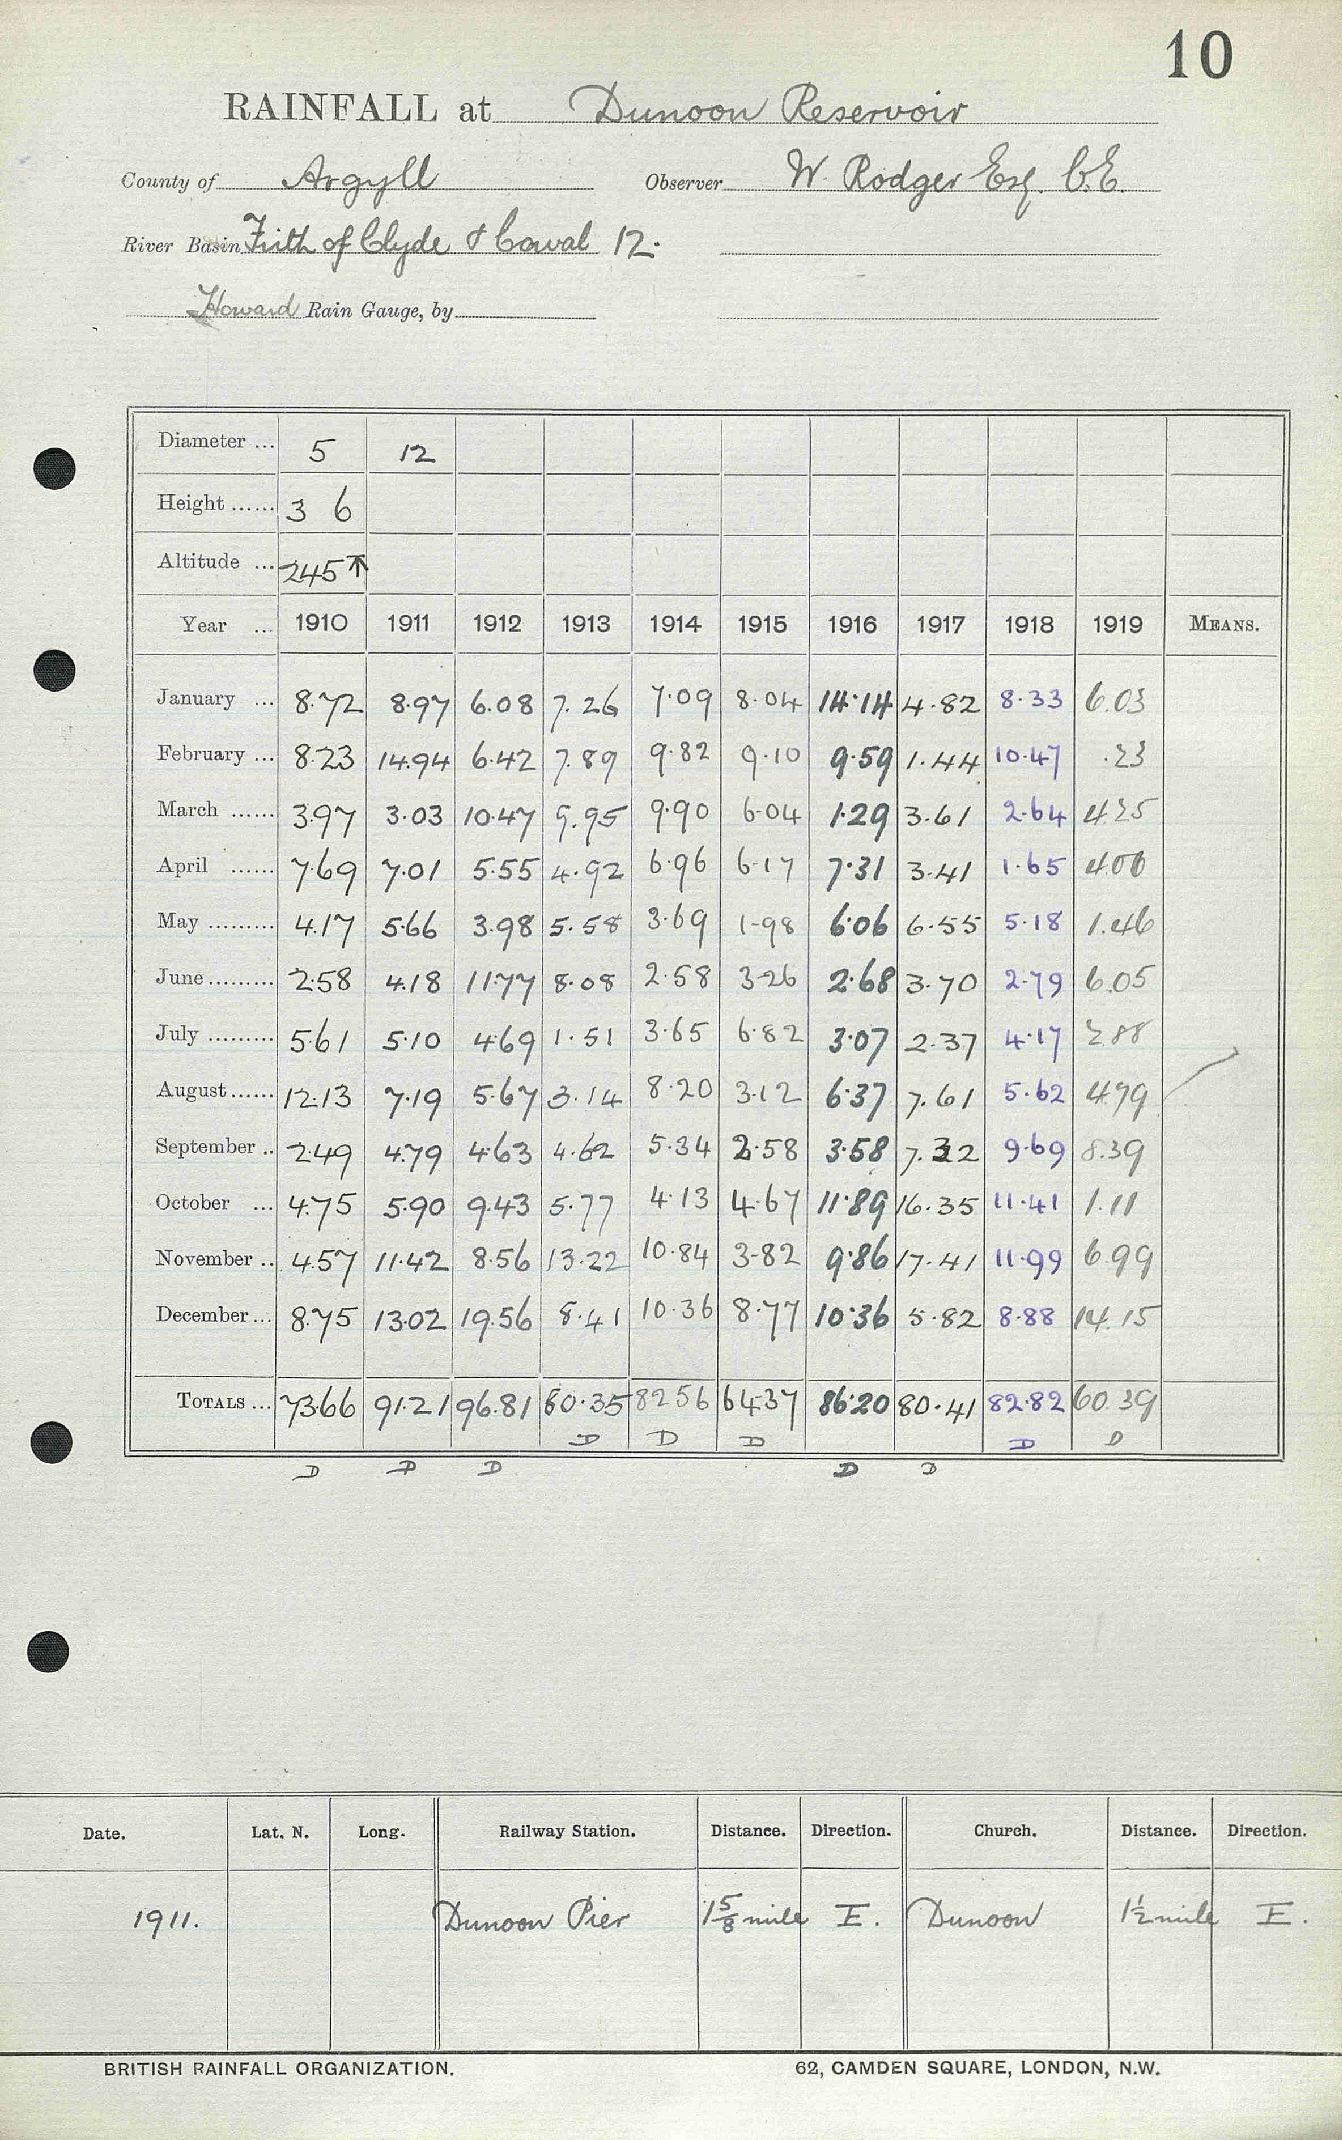 10
RAINFALL at Dunoon Reservoir
County of Argyll Observer W. Rodger Esq. C.E.
River Basin Firth of Clyde & Cowal 12.
Howard Rain Gauge, by
Diameter ... 5 12
Height ...... 3 6
Altitude ... 245 ↑
Year ... 1910 1911 1912 1913 1914 1915 1916 1917 1918 1919 MEANS.
January ... 8.72 8.97 6.08 7.26 7.09 8.04 14.14 4.82 8.33 6.03
February ... 8.23 14.94 6.42 7.89 9.82 9.10 9.59 1.44 10.47 .23
March ...... 3.97 3.03 10.47 9.95 9.90 6.04 1.29 3.61 2.64 4.25
April ...... 7.69 7.01 5.55 4.92 6.96 6.17 7.31 3.41 1.65 4.06
May ......... 4.17 5.66 3.98 5.58 3.69 1.98 6.06 6.55 5.18 1.46
June ......... 2.58 4.18 11.77 8.08 2.58 3.26 2.68 3.70 2.79 6.05
July ......... 5.61 5.10 4.69 1.51 3.65 6.82 3.07 2.37 4.17 2.88
August ...... 12.13 7.19 5.67 3.14 8.20 3.12 6.37 7.61 5.62 4.79
September .. 2.49 4.79 4.63 4.62 5.34 2.58 3.58 7.32 9.69 8.39
October ... 4.75 5.90 9.43 5.77 4.13 4.67 11.89 16.35 11.41 1.11
November .. 4.57 11.42 8.56 13.22 10.84 3.82 9.86 17.41 11.99 6.99
December ... 8.75 13.02 19.56 8.41 10.36 8.77 10.36 5.82 8.88 14.15
TOTALS ... 73.66 91.21 96.81 80.35 82.56 64.37 86.20 80.41 82.82 60.39
D D D D D
D D D D D
Date. Lat. N. Long. Railway Station. Distance. Direction. Church. Distance. Direction.
1911. Dunoon Pier 1 5/8 mile E. Dunoon 1 1/2 mile E.
BRITISH RAINFALL ORGANIZATION. 62, CAMDEN SQUARE, LONDON, N.W.